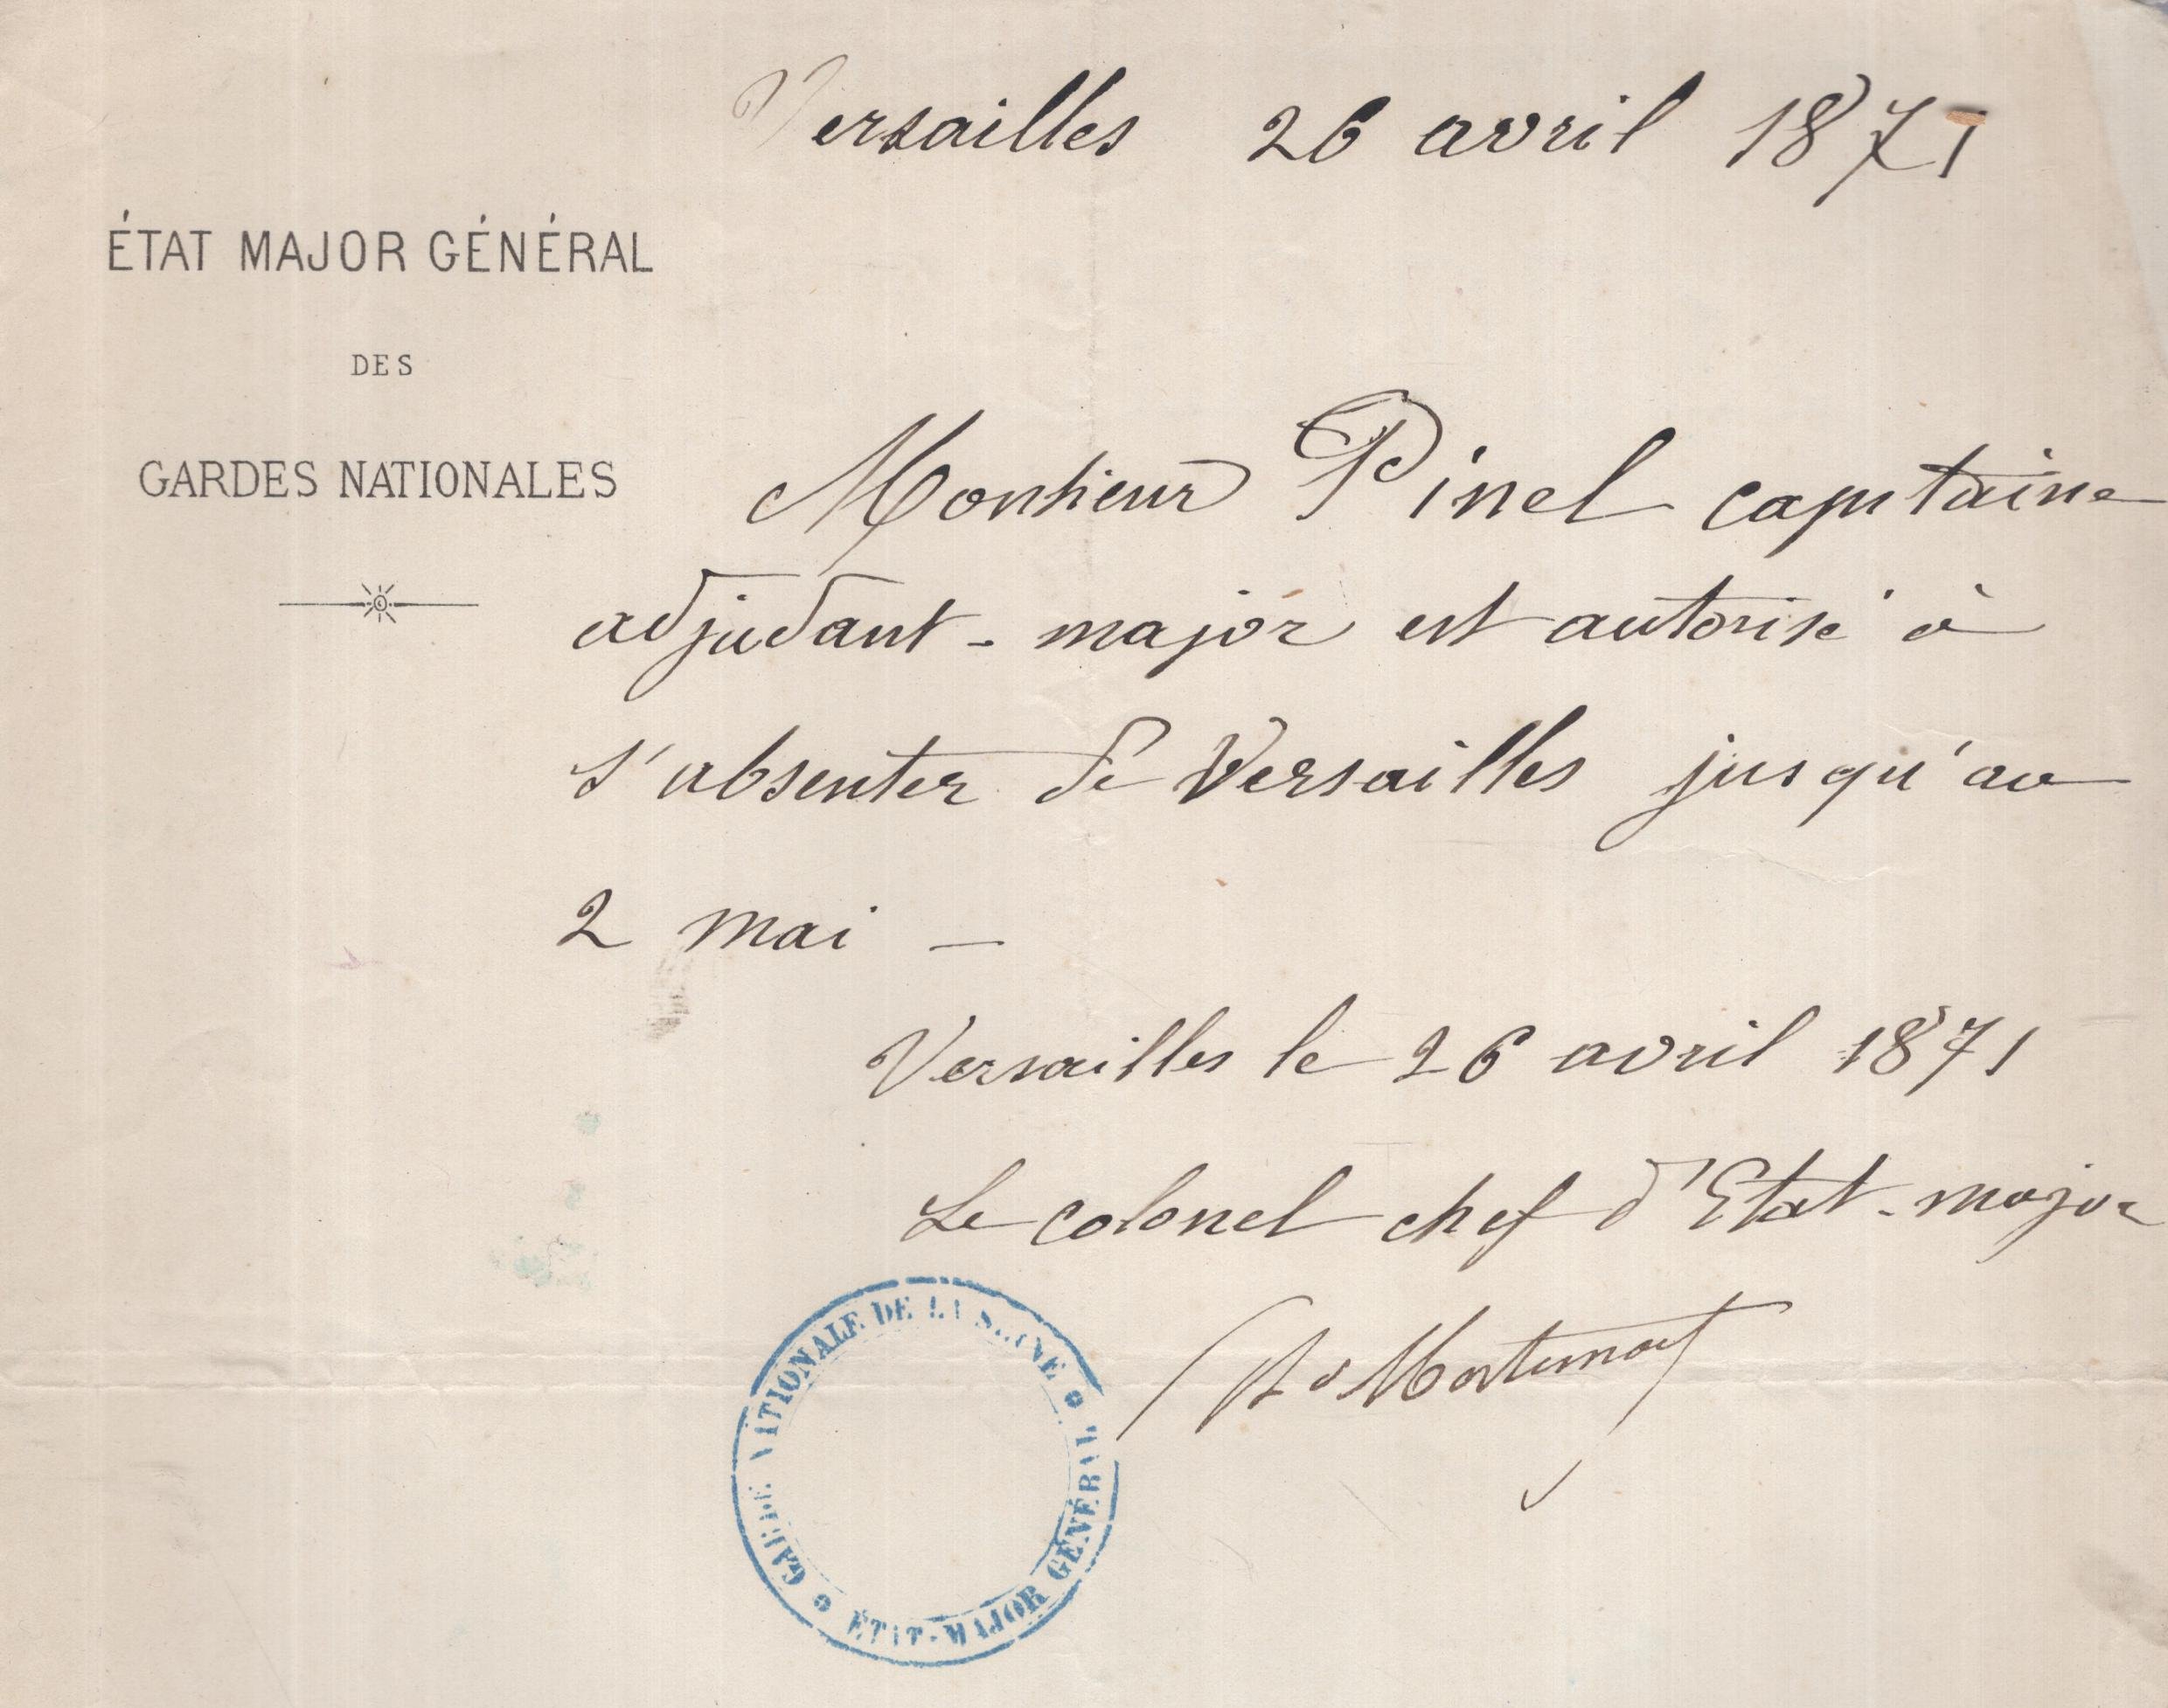 Versailles 26 avril 1871
ÉTAT MAJOR GÉNÉRAL
DES
GARDES NATIONALES
Monsieur Pinel capitaine
adjudant-major est autorisé à
s'absenter de Versailles jusqu'au
2 mai —
Versailles le 26 avril 1871
Le colonel chef d'Etat-major
GARDE NATIONALE DE LA SEINE
ÉTAT-MAJOR GÉNÉRAL